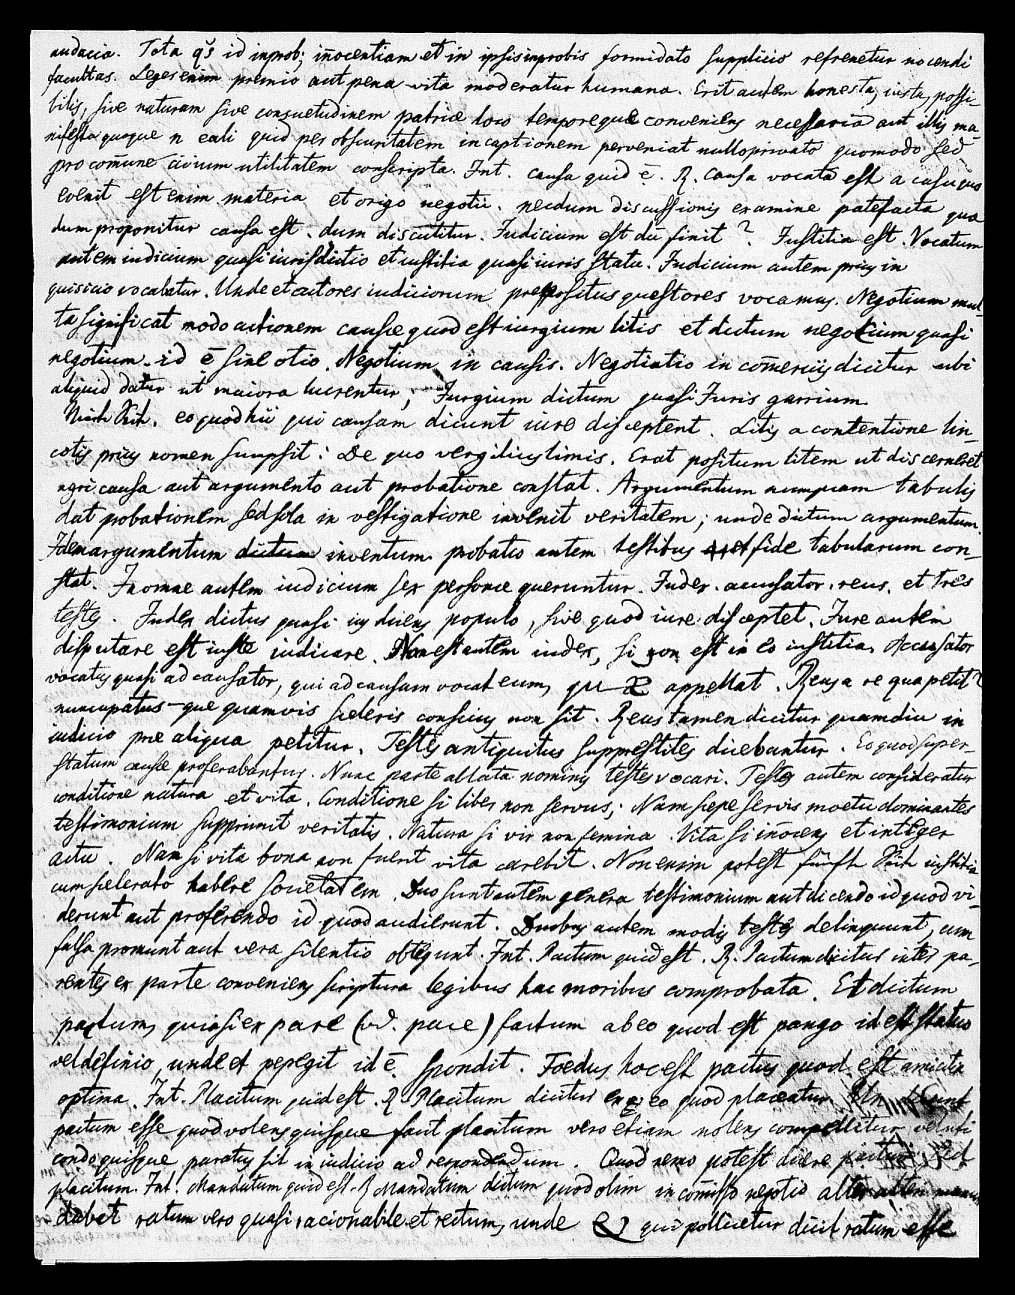 audacia. Tota q's id inprob; iñocentiam et in ipsis inprobis formidato supplicio refrenetur nocendi
facultas. Leges enim premio aut pena vita moderatur humana. Erit autem honesta, iusta, possi-
bilis, sive naturam sive consuetudinem patriæ loco temporeque conveniens necessaria aut illis ma-
nifesta quoque n eali quid per obscuritatem in captionem perveniat nullo privato quomodo sed
pro com̄une civium utilitatem conscripta. Int. causa quid ē. R. Causa vocata est a casu quo
evenit est enim materia et origo negotii. necdum discussionis examine patefacta qua
dum proponitur causa est. dum discutitur. Iudicium est dū finit ? Iustitia est. Vocatum
autem iudicium quasi iurisdictio et iustitia quasi iuris statu. Iudicium autem prius in
quisicio vocabatur. Unde et autores iudiciorum prepositus questores vocamus. Negotium mul-
ta significat modo actionem causæ quod est iurgium litis et dictum negotium quasi
negotium id ē sine otio. Negotium in causis. Negotiatio in com̄erciis dicitur ubi
aliquid datur ut maiora lucrentur; Jurgium dictum quasi Juris garrium
eo quod hii qui causam dicunt iure disceptent. Litis a contentione lim-
cotis prius nomen sumpsit: De quo vergilius limis. Erat positum litem ut discerneret
agri. causa aut argumento aut probatione constat. Argumentum numquam tabulis
dat probationem sed sola in vestigatione invenit veritatem; unde dictum argumentum
Idem argumentum dictum inventum probatio autem testibus et fide tabularum con-
stat. In omne autem iudicium sex personæ queruntur. Iudex. accusator. reus. et tres
testes. Iudex dictus quasi ius dicens populo, sive quod iure disceptet. Iure autem
disputare est iuste iudicare. Non est autem iudex, si non est in eo iustitia. Accusator
vocatus quasi ad causator, qui ad causam vocat eum, quē appellat. Reus a re qua petit̃
nuncupatus que quamvis sceleris conscius non sit. Reus tamen dicitur quamdiu in
iudicio pre aliqua petitur. Testes antiquitus supprestites dicebantur. Eo quod super-
statum causæ proferabantur. Nunc parte ablata nominis testes vocari. Testes autem consideratur
conditione natura et vita. Conditione si liber non servus; Nam sepe servis moetu dominantes
testimonium supprimit veritatis. Natura si vir non femina. Vita si iñocens et integer
actu. Nam si vita bona non fuerit vita carebit. Non enim potest iustitia
cum scelerato habere societatem. Duo sunt autem genera testimonium aut dicendo id quod vi-
derunt aut proferendo id quod audierunt. Duobus autem modis testes delinquunt, cum
falsa promunt aut vera silentio obtegunt. Int. Pactum quid est. R. Pactum dicitur inter pa-
rentes ex parte conveniens scriptura legibus hac moribus comprobata. Et dictum
pactum, quiasi ex pare (vd. pace) factum ab eo quod est pango id est statuo
vel definio, unde et pepegit id ē. spondit. Foedus hoc est pactus quod est amicitia
optima. Int. Placitum quid est. R. Placitum dicitur ex eo quod placeatur
pactum esse quod volens quisque faut placitum vero etiam nolens compellitur veluti
condo quisque paratus sit in iudicio ad respondendum. Quod nemo potest dicere pactum sed
placitum. Int. Mandatum quid est. R Mandatum dictum quod olim in com̄isso negotio alter
dabat ratum vero quasi racionabile et rectum, unde qui pollicetur dicit ratum esse